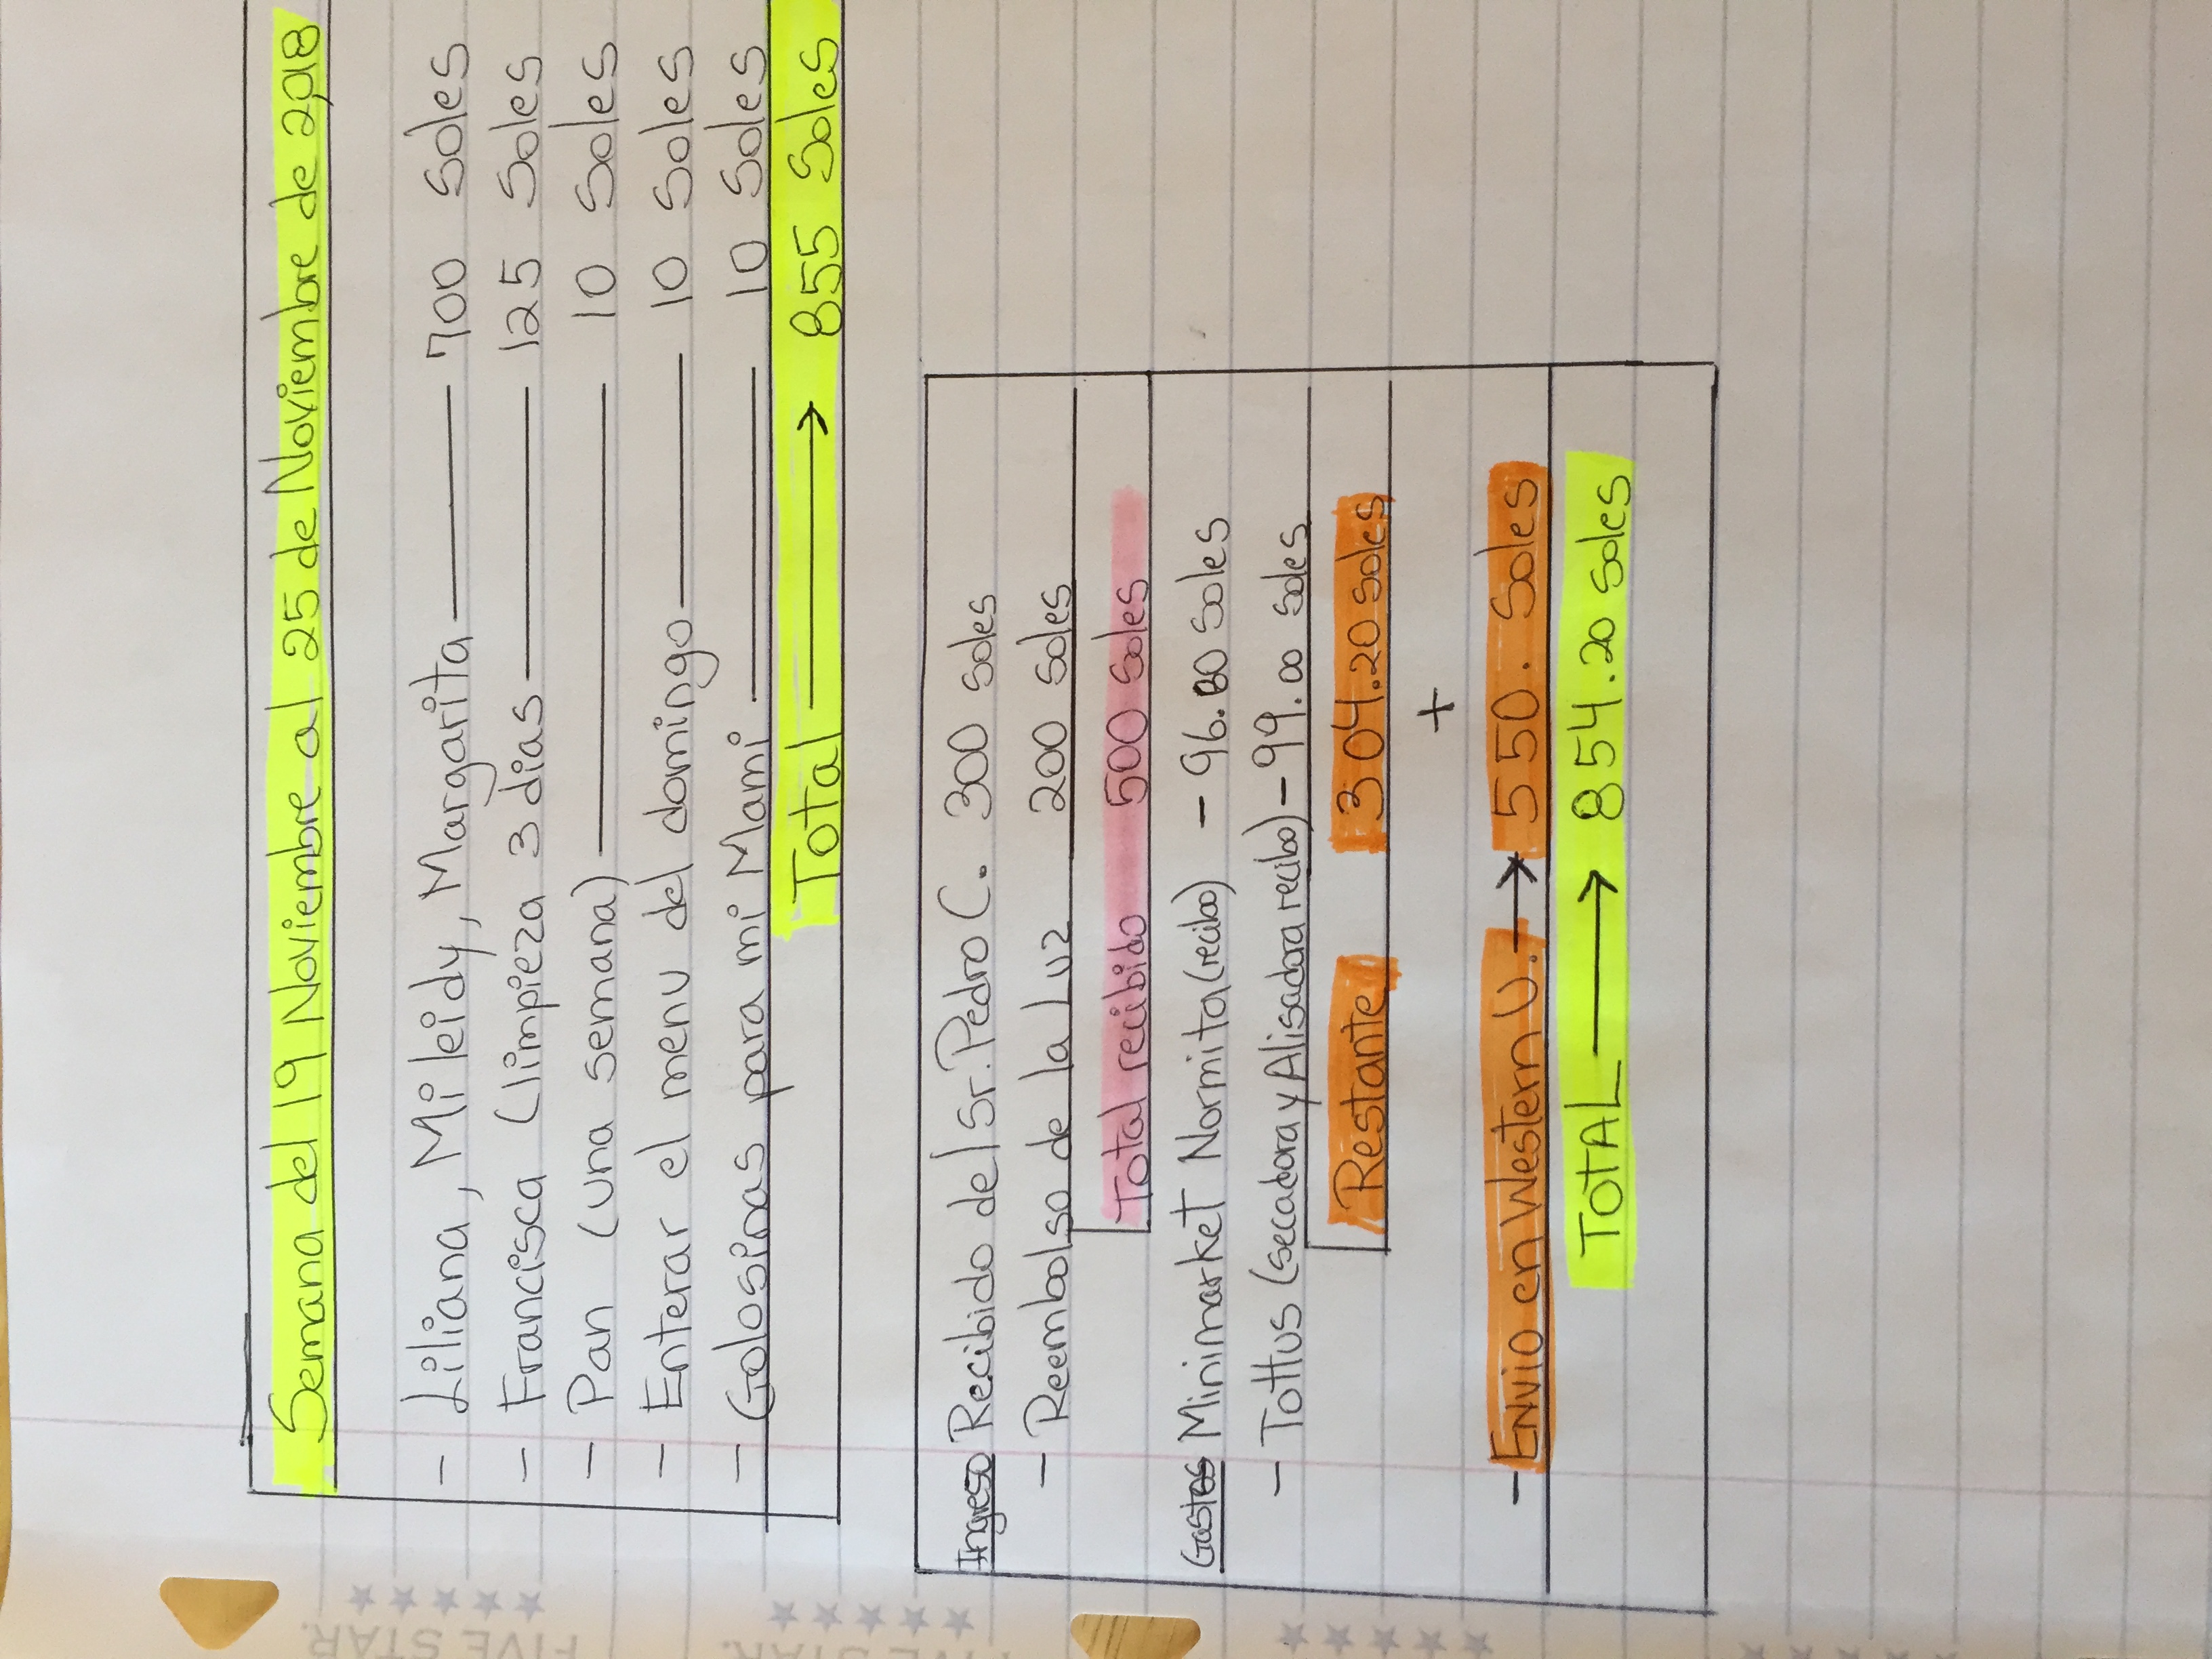 Semana del 19 Noviembre al 25 de Noviembre de 2018
- Liliana, Mileidy, Margarita — 700 Soles
- Francisca (limpieza 3 dias — 125 Soles
- Pan (una semana) — 10 Soles
- Enterar el menu del domingo — 10 Soles
- Golosinas para mi Mami — 10 Soles
Total → 855 Soles
Ingreso Recibido del Sr. Pedro C. 300 soles
- Reembolso de la Luz 200 soles
Total recibido 500 soles
Gastos Minimarket Normita (recibo) - 96.80 soles
- Tottus (secadora y Alisadora recibo) - 99.00 soles
Restante 304.20 soles
+
- Envio en Western U. → 550. Soles
TOTAL → 854.20 soles
FIVE STAR.
FIVE STAR.